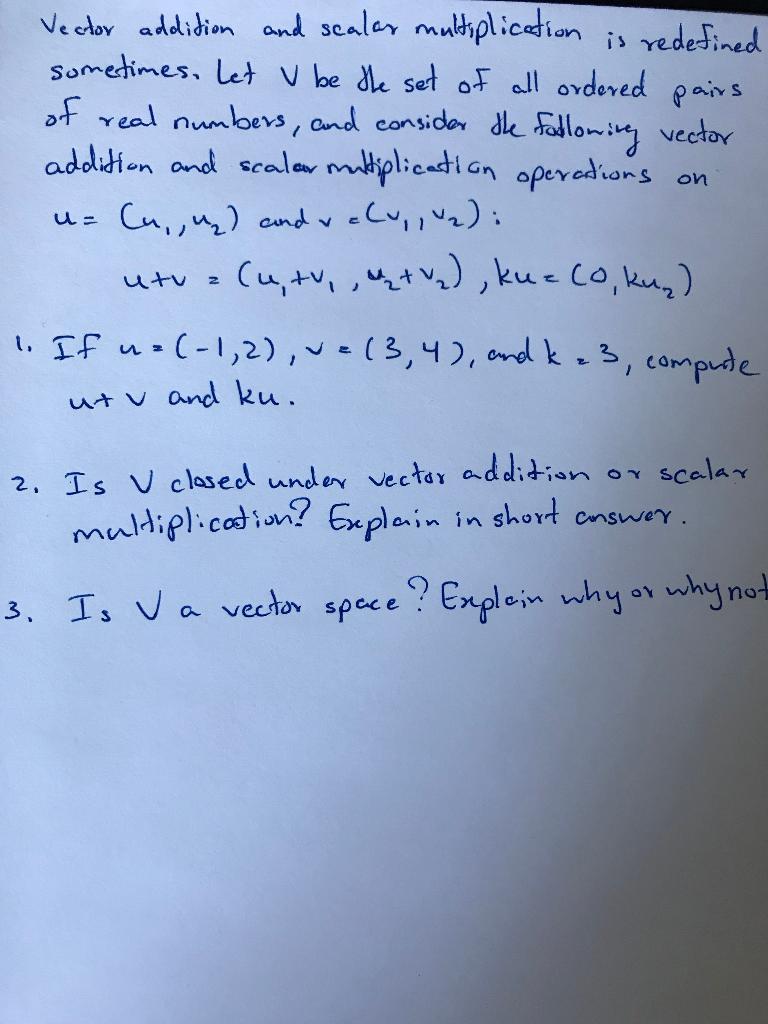 Vector addition and scalar multiplication is redefined
sometimes. Let V be the set of all ordered pairs
of real numbers, and consider the following vector
addition and scalar multiplication operations on
u = (u₁, u₂) and v = (v₁, v₂):
u+v = (u₁+v₁, u₂+v₂), ku = (0, ku₂)
1. If u = (-1,2), v = (3,4), and k = 3, compute
u+v and ku.
2. Is V closed under vector addition or scalar
multiplication? Explain in short answer.
3. Is V a vector space? Explain why or why not